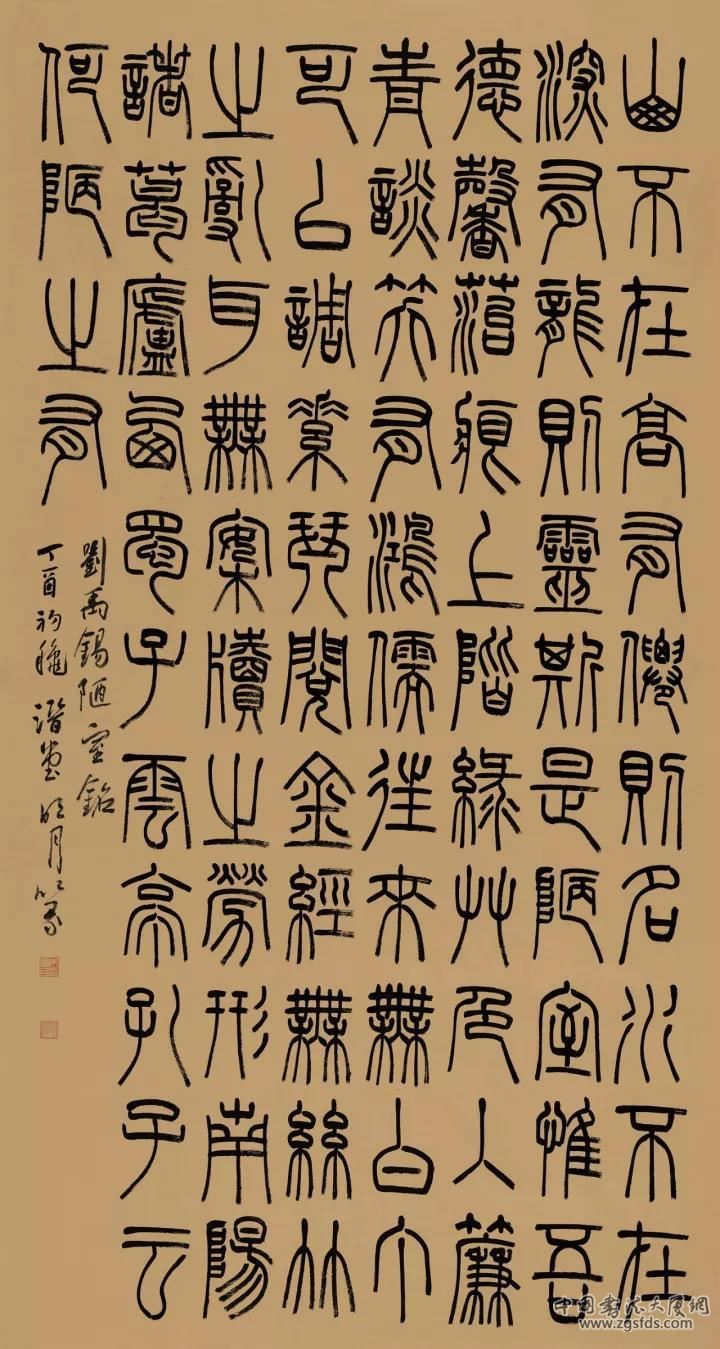 山不在高有僊則名水不在
深有龍則靈斯是陋室惟吾
德馨菭痕上階綠艸色入簾
青談笑有鴻儒往來無白丁
可以調素琴閱金經無絲竹
之亂耳無案牘之勞形南陽
諸葛廬西蜀子雲亭孔子云
何陋之有
劉禹錫陋室銘
丁酉初穐潛堂明月篆
中国書法大厦網
www.zgsfds.com